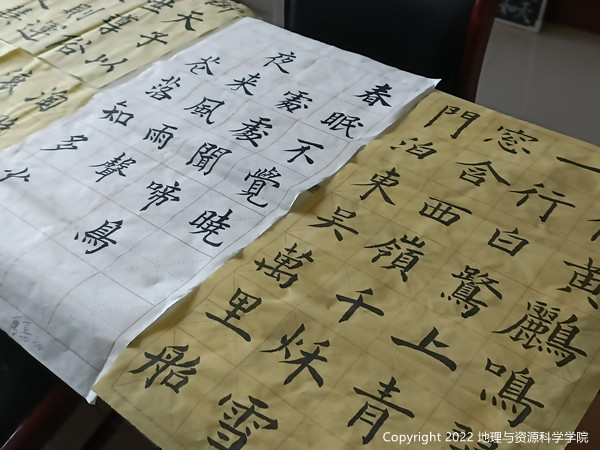 春眠不覺曉
處處聞啼鳥
夜来風雨聲
花落知多少
黃鸝鳴
一行白鷺上青
窓含西嶺千秋雪
門泊東吳萬里船
天子
尊
以
Copyright 2022 地理与资源科学学院